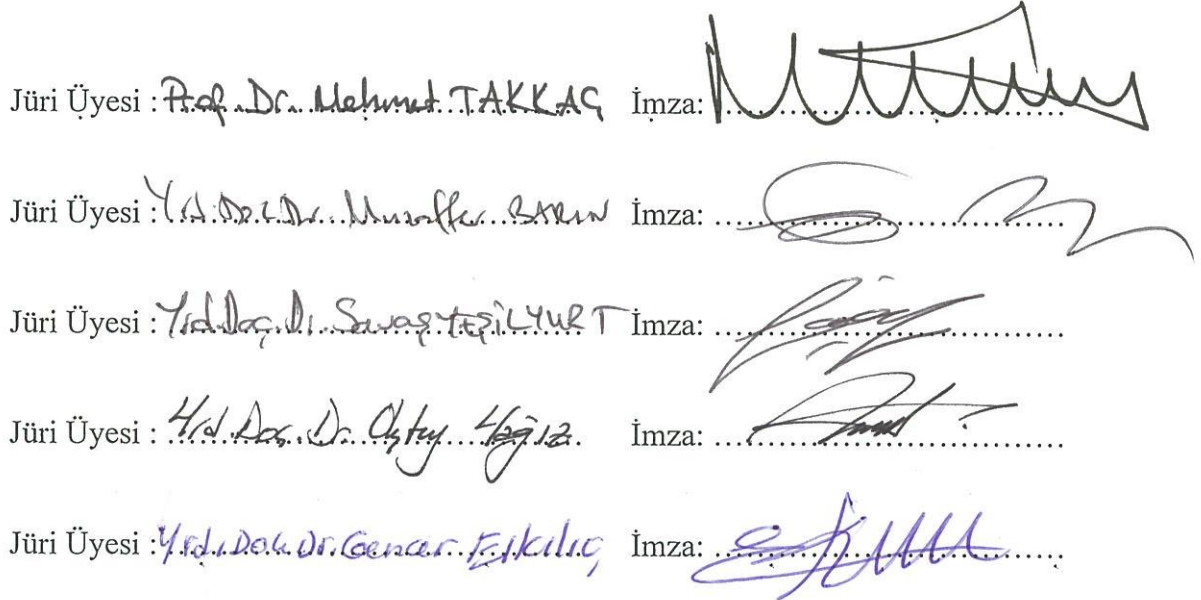 Jüri Üyesi : Prof. Dr. Mehmet TAKKAÇ İmza:
Jüri Üyesi : Yrd. Doç. Dr. Muzaffer BARIN İmza:
Jüri Üyesi : Yrd. Doç. Dr. Savaş YEŞİLYURT İmza:
Jüri Üyesi : Yrd. Doç. Dr. Oktay Yağız İmza:
Jüri Üyesi : Yrd. Doç. Dr. Gencer İmza: